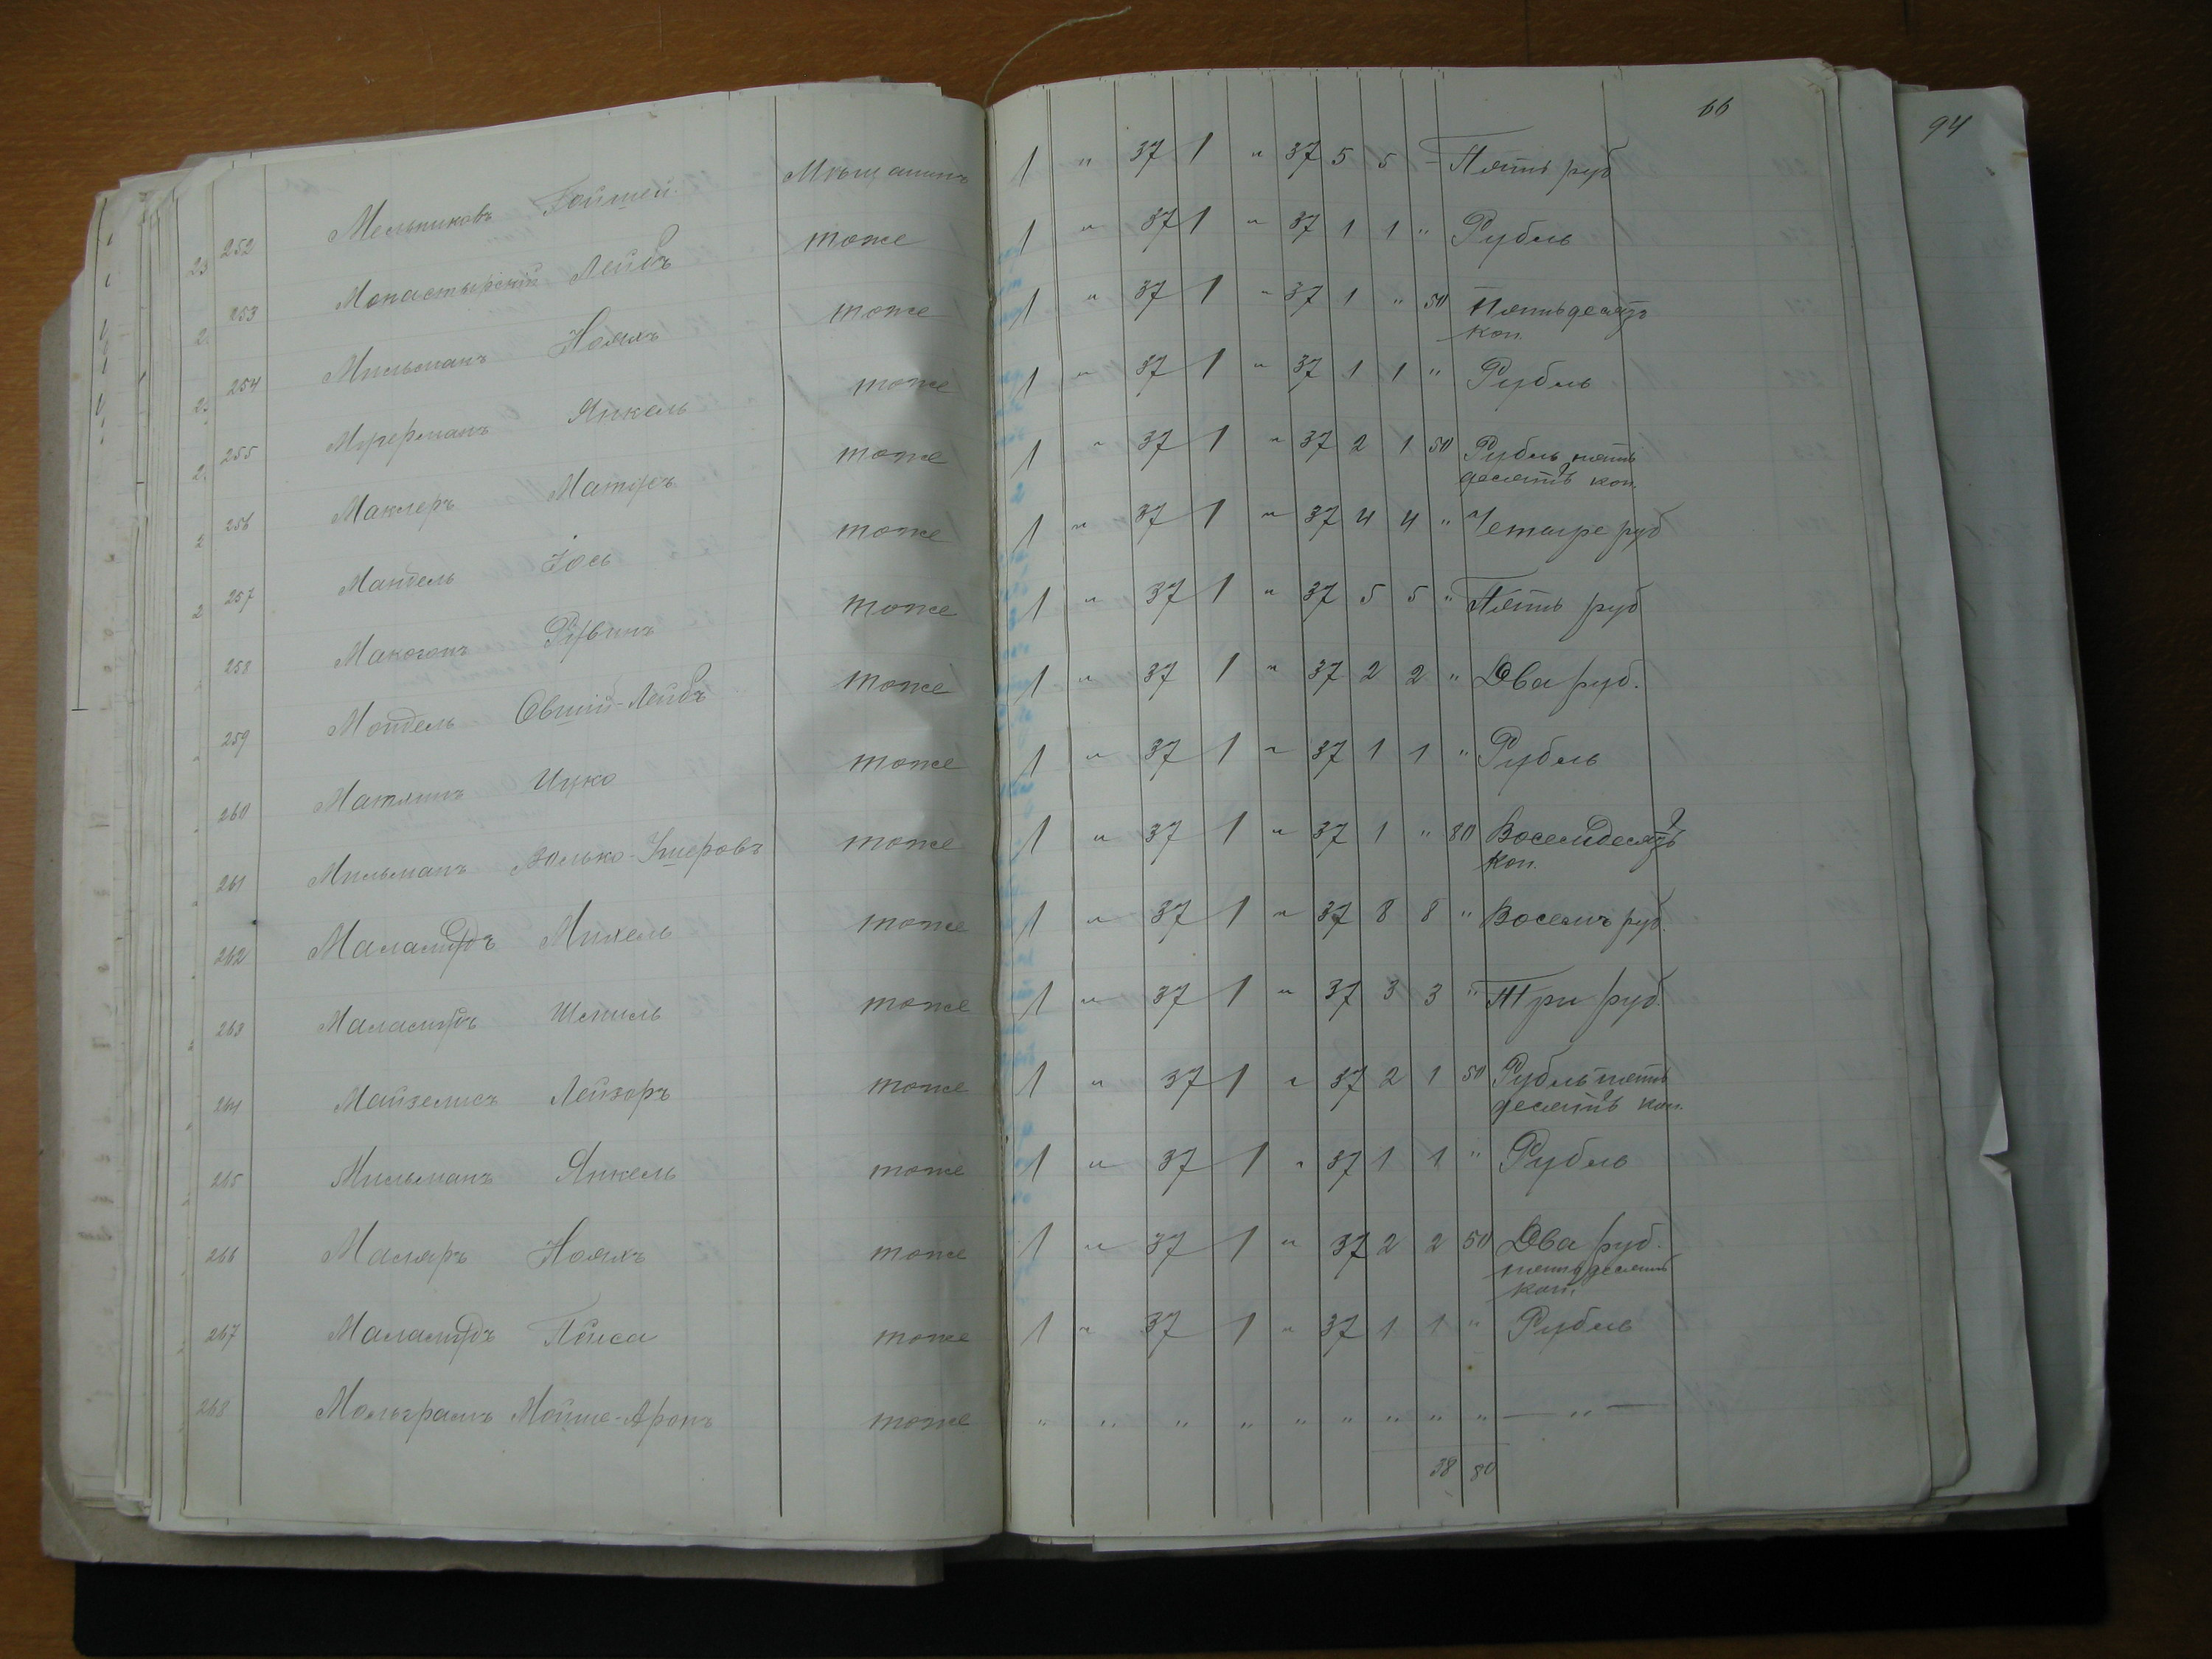 66
94
252 Мельниковъ Гойшей. Мѣщанинъ 1 " 37 1 " 37 5 5 - Пять руб
253 Монастырскій Лейбъ тоже 1 " 37 1 " 37 1 1 " Рубль
254 Мильманъ Ноахъ тоже 1 " 37 1 " 37 1 " 50 Пятьдесятъ
коп.
255 Янкель тоже 1 " 37 1 " 37 1 1 " Рубль
256 Маклеръ тоже 1 " 37 1 " 37 2 1 50 Рубль пять
десятъ коп.
257 Мандель Іось тоже 1 " 37 1 " 37 4 4 " Четыре руб
258 Макогонъ Рувинъ тоже 1 " 37 1 " 37 5 5 " Пять руб
259 Мондель Овшій-Лейбъ тоже 1 " 37 1 " 37 2 2 " Два руб.
260 Матлинъ Ицко тоже 1 " 37 1 " 37 1 1 " Рубль
261 Мильманъ Волько-Ушеровъ тоже 1 " 37 1 " 37 1 " 80 Восемдесятъ
коп.
262 Маламудъ Михель тоже 1 " 37 1 " 37 8 8 " Восемъ руб.
263 Маламудъ Шмиль тоже 1 " 37 1 " 37 3 3 " Три руб.
264 Майзелисъ Лейзоръ тоже 1 " 37 1 " 37 2 1 50 Рубль пять
десятъ коп.
265 Мильманъ Янкель тоже 1 " 37 1 " 37 1 1 " Рубль
266 Маляръ Ноахъ тоже 1 " 37 1 " 37 2 2 50 Два руб.
пятьдесятъ
коп.
267 Маламудъ Пейса тоже 1 " 37 1 " 37 1 1 " Рубль
268 Мольграмъ Мойше-Аронъ тоже " " " " " " " " " — " —
38 80